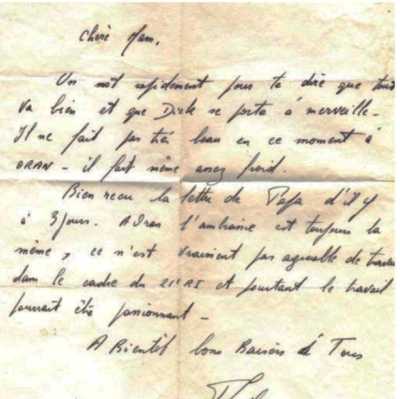 Chère Mam,
Un mot rapidement pour te dire que tout
va bien et que Dick se porte à merveille -
Il ne fait pas très beau en ce moment à
ORAN - il fait même assez froid.
Bien reçu la lettre de Papa d'il y
à 3 jours. A l'ambiance est toujours la
même, ce n'est vraiment pas agréable de
dans le cadre du et pourtant le travail
pourrait être passionnant -
A Bientôt bons Baisers à Tous